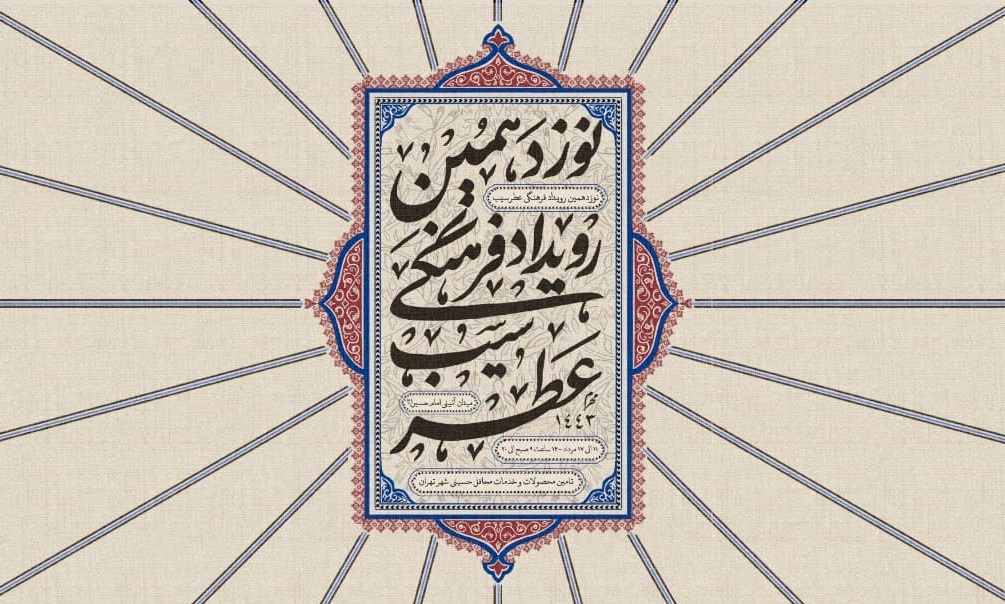 نوزدهمین
نوزدهمین رویداد فرهنگی عطر سیب
رویداد فرهنگی
عطر سیب
محرم
۱٤٤۳
میدان آئینی امام حسین
۱۱ الی ۱۷ مرداد ۱۴۰۰ ساعت ۹ صبح الی ۲۰
تامین محصولات و خدمات محافل حسینی شهر تهران